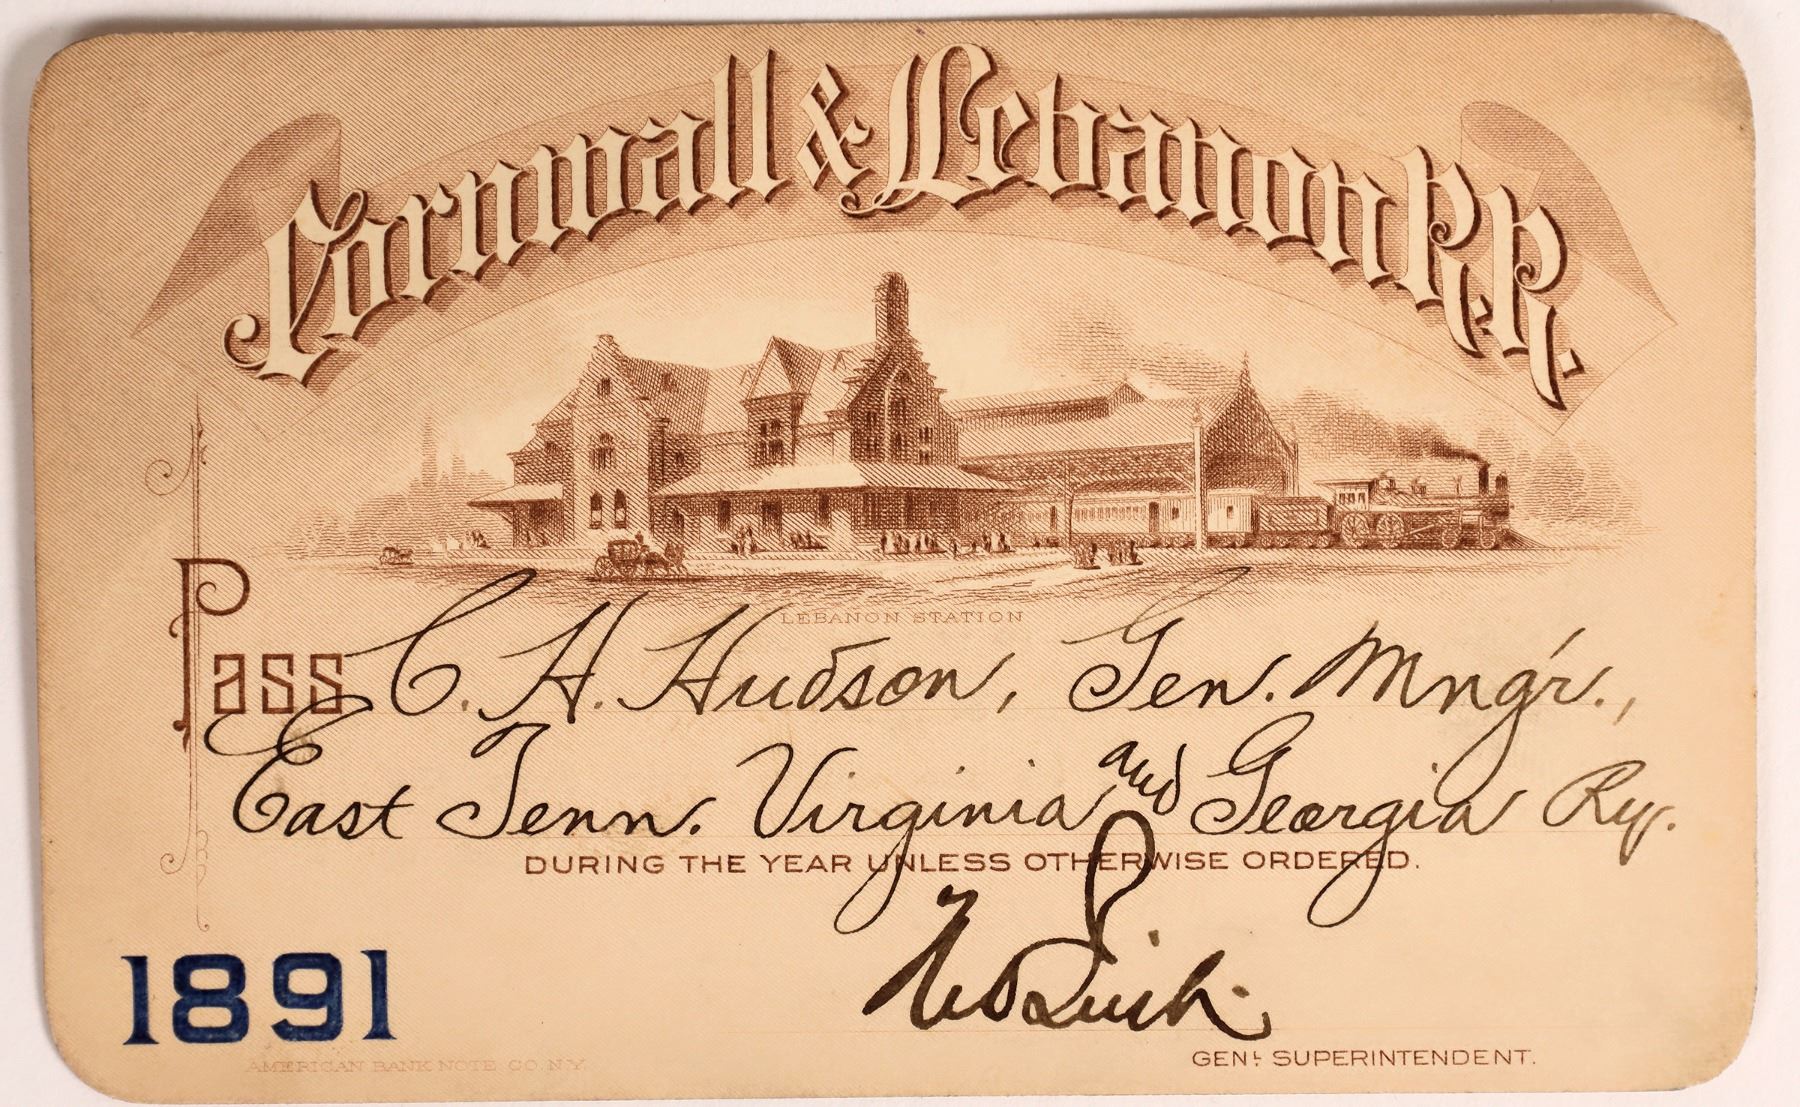 Cornwall & Lebanon R.R.
LEBANON STATION
Pass C. H. Hudson, Gen. Mng'r.,
East Tenn. Virginia and Georgia Ry.
DURING THE YEAR UNLESS OTHERWISE ORDERED.
1891
GENL SUPERINTENDENT.
AMERICAN BANK NOTE CO. N.Y.